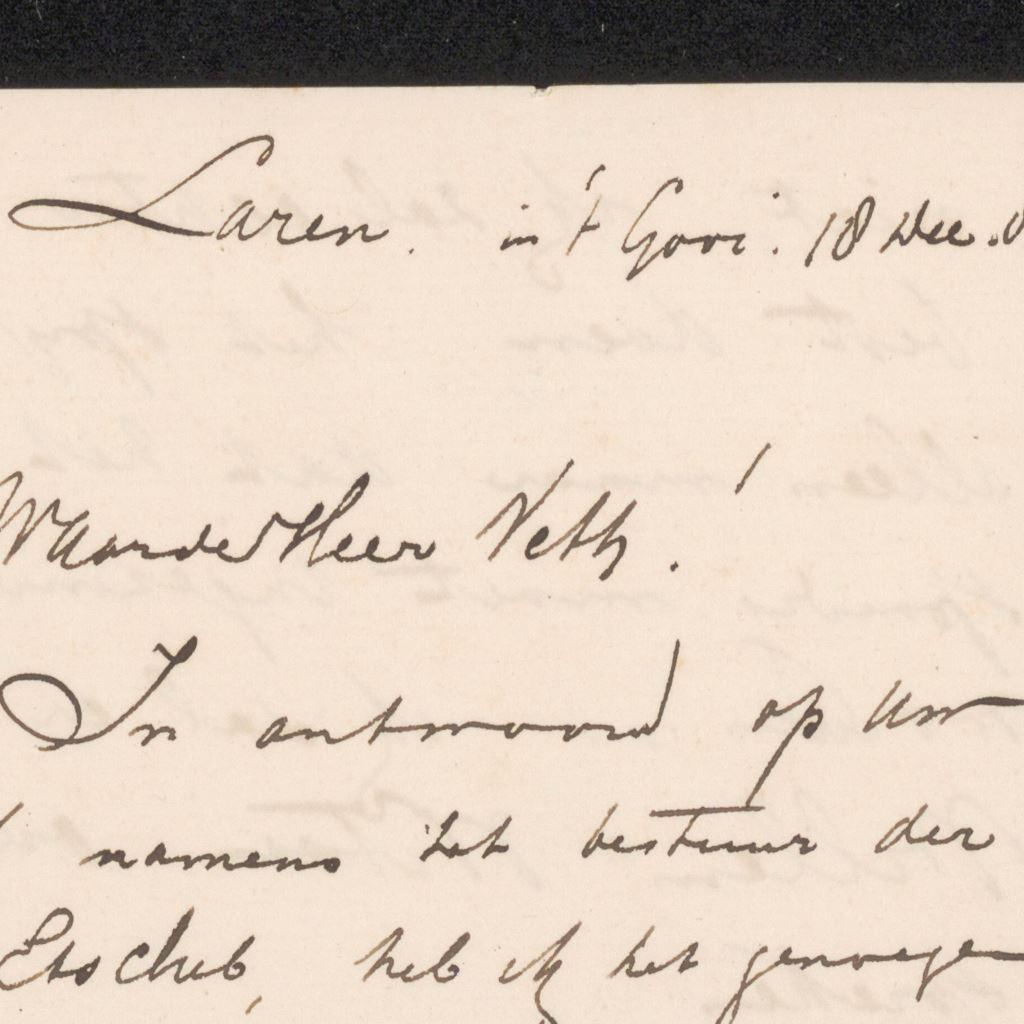 Laren. in 't Gooi. 18 Dec.
Waarde Heer Veth!
In antwoord op uw
namens het bestuur der
Etsclub, heb ik het genoegen